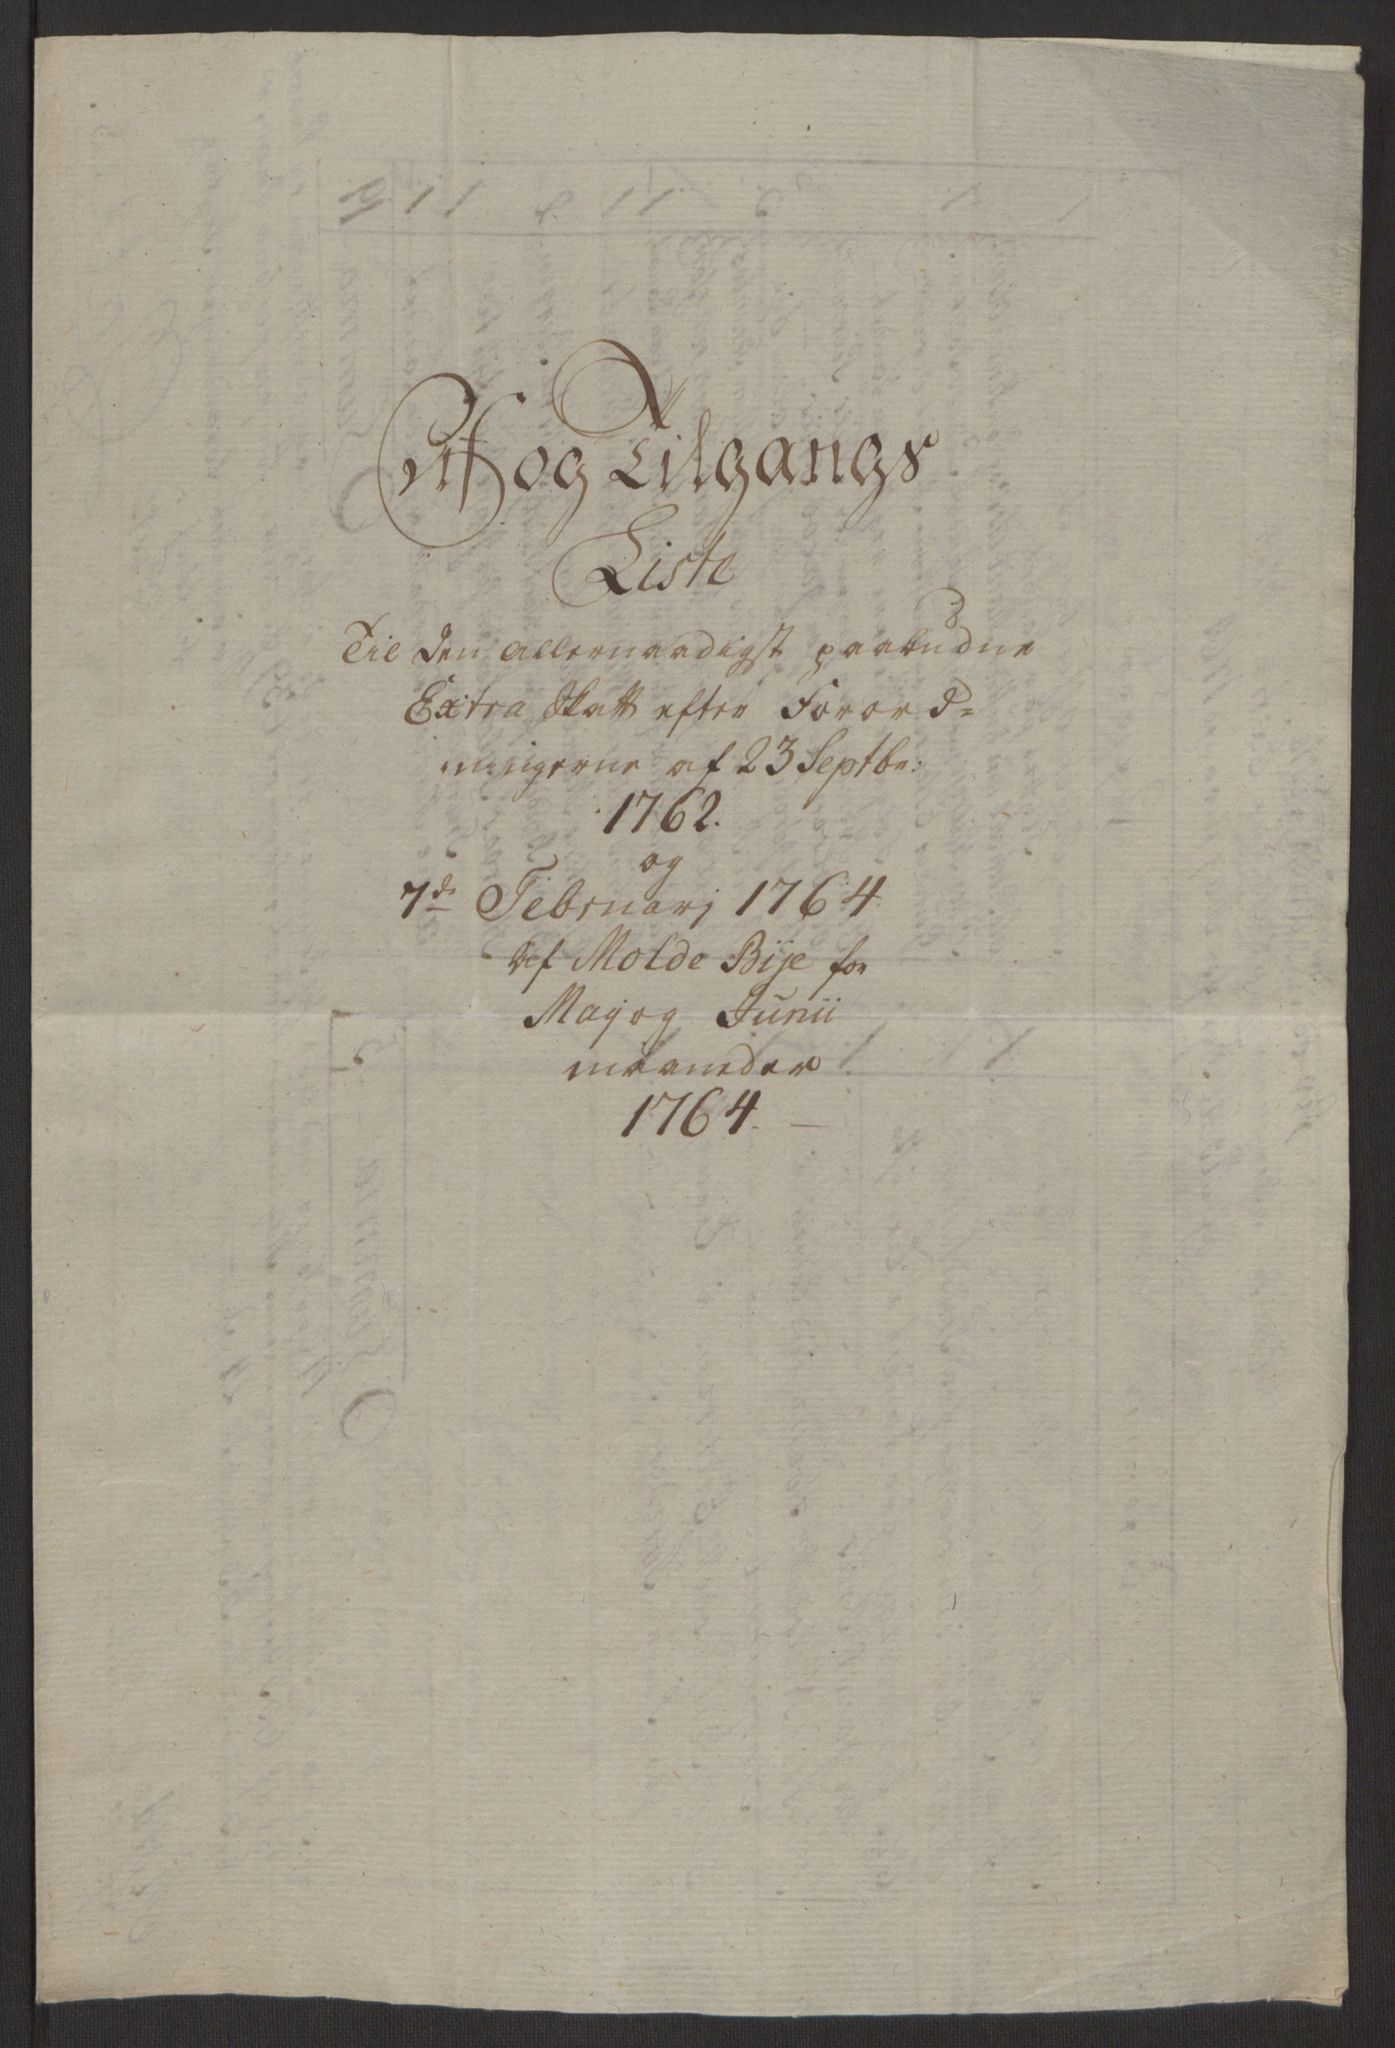 Af og Tilgangs
Liste
Til den allernaadigst paabudne
Extra Skatt efter Forord=
ningerne af 23 Septbr:
1762.
og
7de Februarj 1764
Af Molde Bije for
Maj og Junii
maaneder
1764.